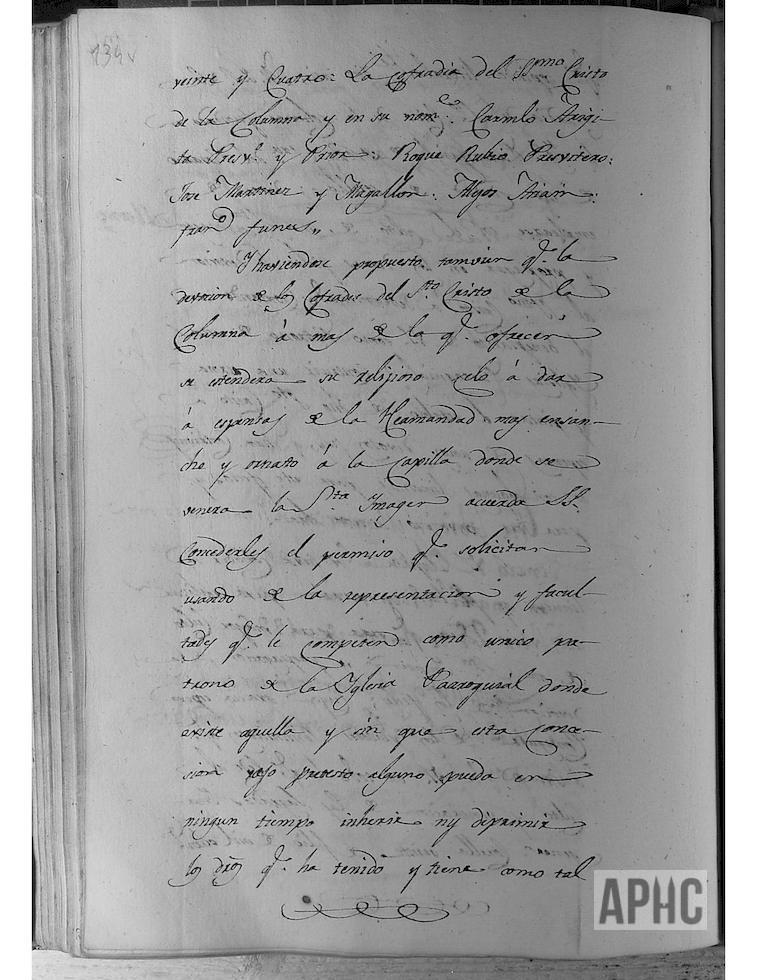 134v
veinte y Cuatro: La Cofradia del Ssmo Cristo
de la Columna y en su nome. Carmlo Arigi-
ta Presvo y Prior: Roque Rubio Presvitero:
Jose Martinez y Magallon:
franco funes,,
Y haviendose propuesto tamvien q.e la
devocion de los Cofrades del Sto. Cristo de la
Columna á mas de la q.e ofrecen
se estendera su relijioso celo á dar
á espensas de la Hermandad mas ensan-
che y ornato á la Capilla donde se
venera la Sta Imagen acuerda SS.
Concederles el permiso q.e solicitan
usando de la representacion y facul-
tades q.e le competen como unico pa-
trono de la Yglesia Parroquial donde
existe aquella y sin que esta Conce-
sion vajo pretesto alguno pueda en
ningun tiempo inherir ny deprimir
los dros q.e ha tenido y tiene como tal
APHC